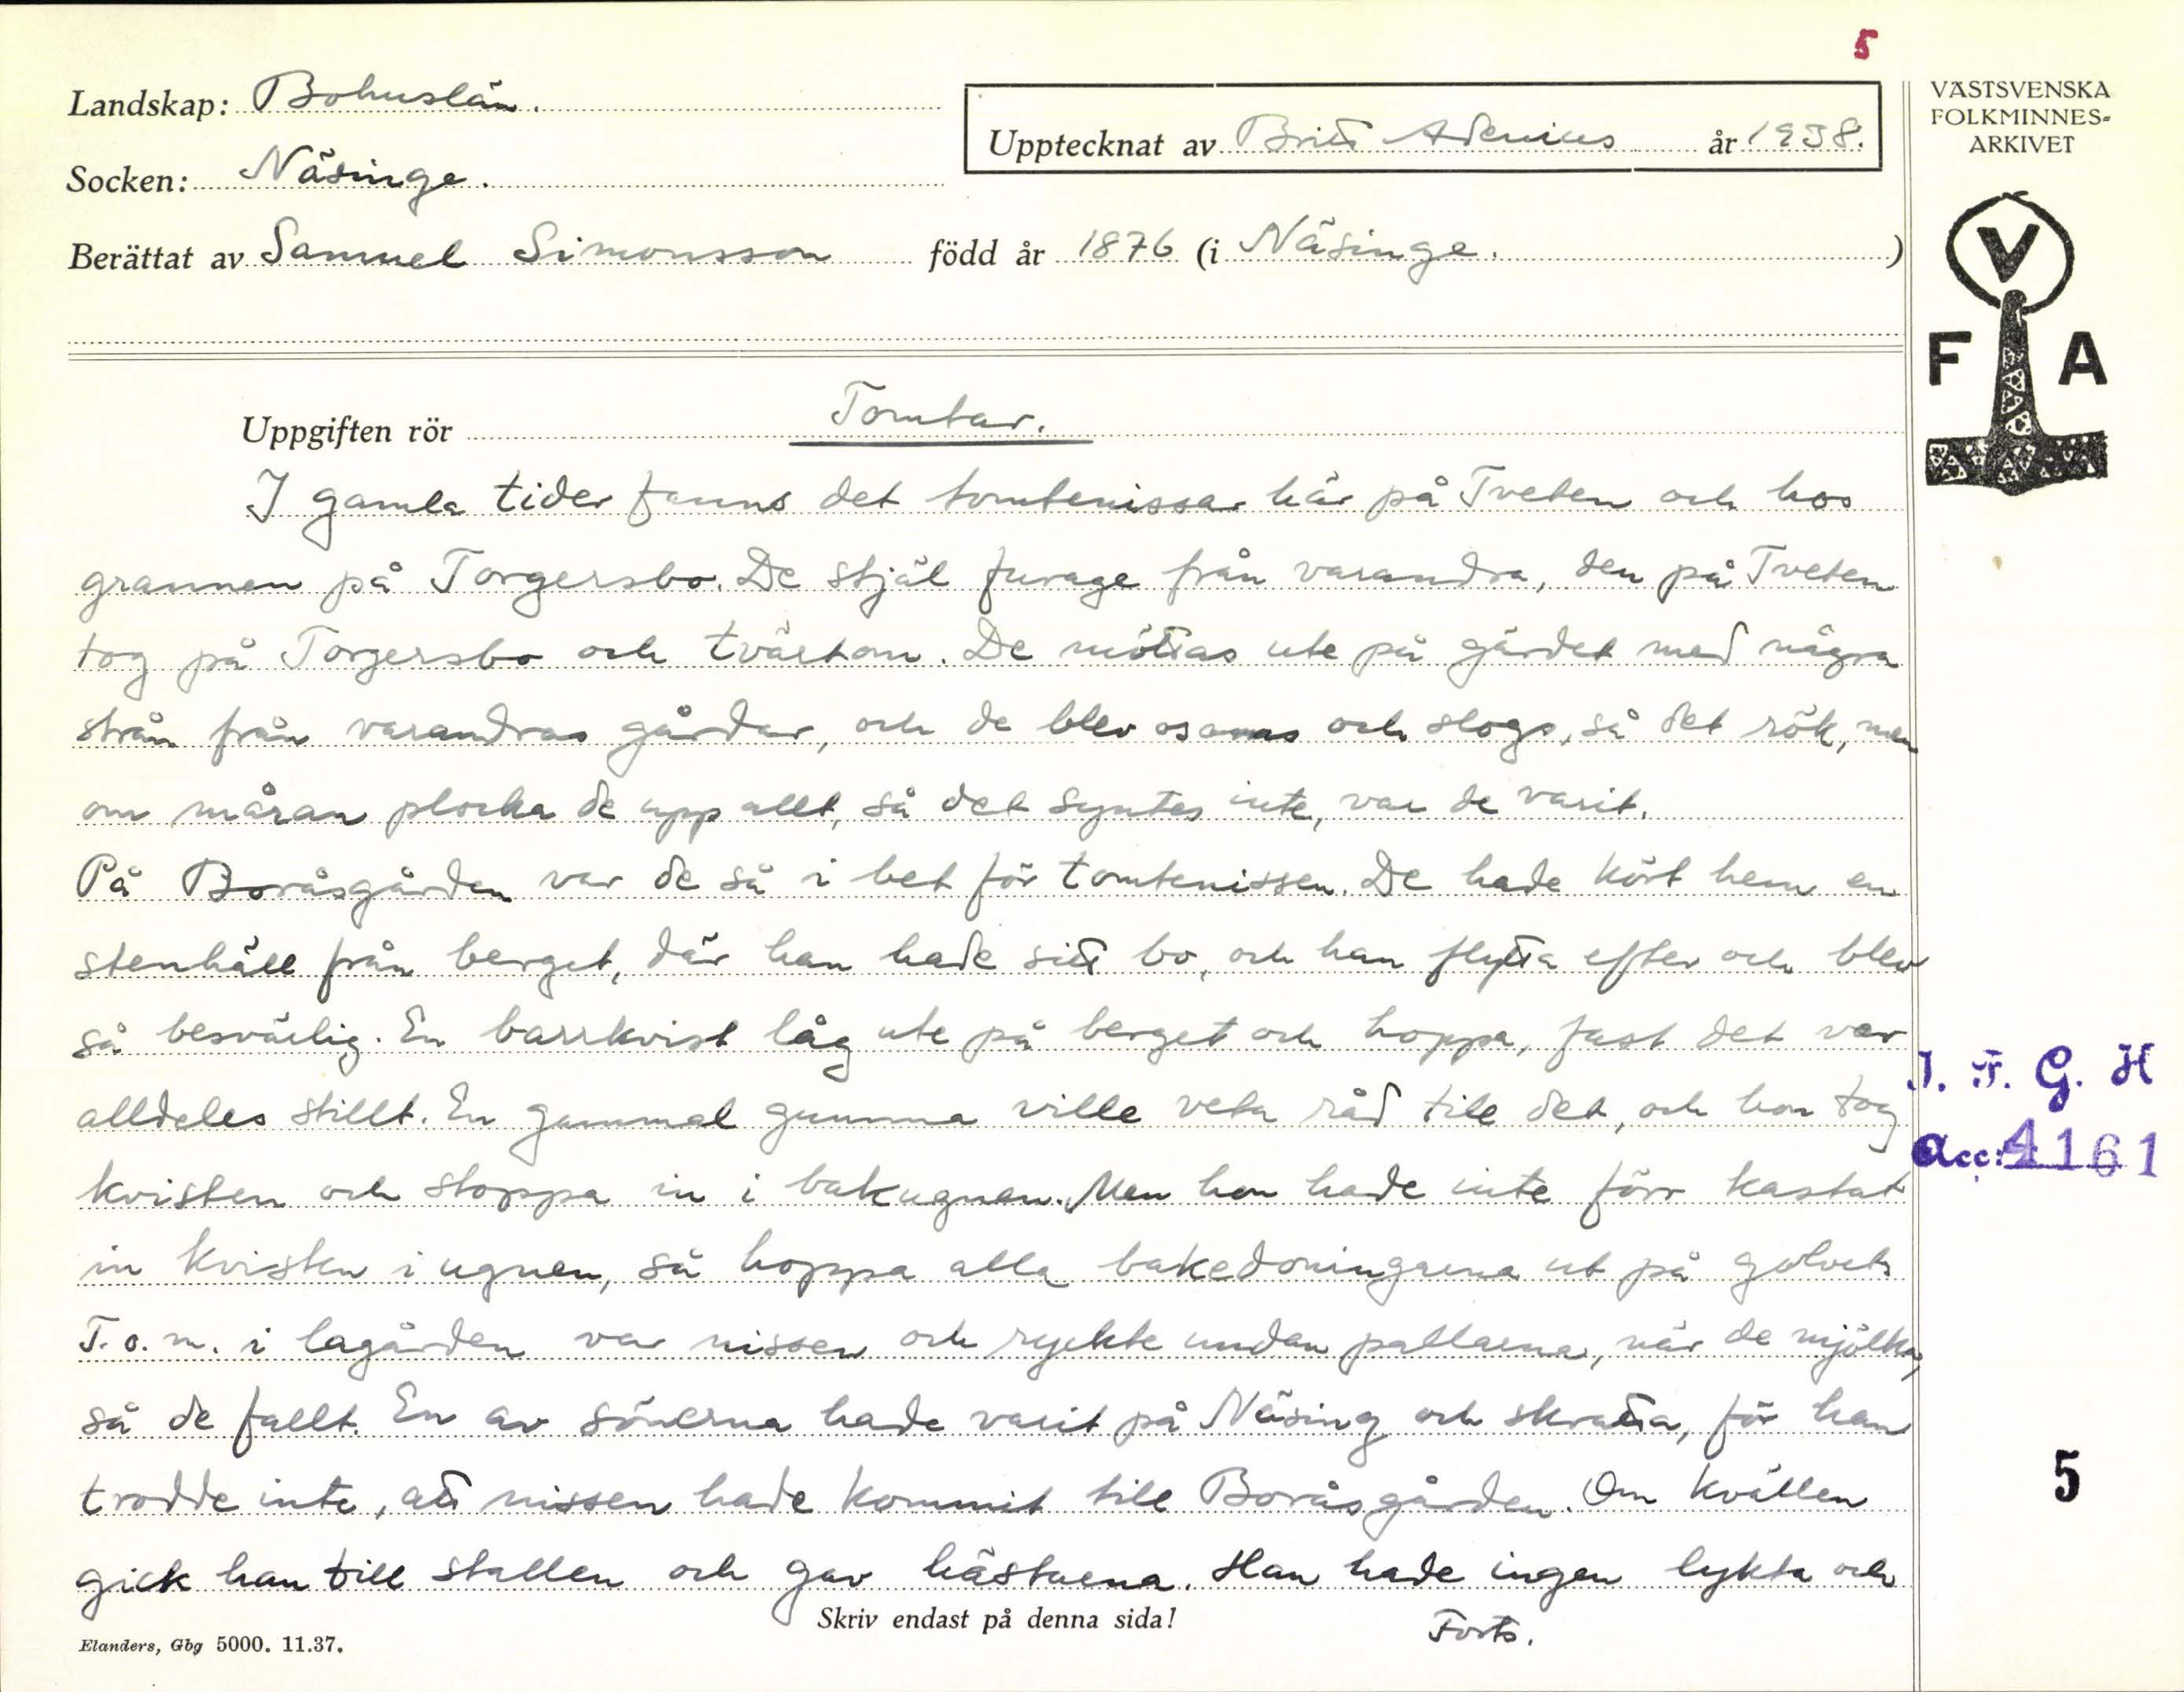 5
Landskap: Bohuslän.
Upptecknat av Britt Adenius år 1938.
VÄSTSVENSKA
FOLKMINNES-
ARKIVET
Socken: Näsinge.
Berättat av Samuel Simonsson född år 1876 (i Näsinge. )
V
F A
Uppgiften rör Tomtar.
I gamla tider fanns det tomtenissar här på Tveten och hos
grannen på Torgersbo. De stjäl furage från varandra, den på Tveten
tog på Torgersbo och tvärtom. De möttas ute på gärdet med några
strån från varandras gårdar, och de blev osams och slogs, så det rök, men
om måran plocka de upp allt, så det syntes inte, var de varit.
På Boråsgården var de så i bet för tomtenissen. De hade kört hem en
stenhäll från berget, där han hade sitt bo, och han flytta efter och blev
så besvärlig. En barrkvist låg ute på berget och hoppa, fast det var
alldeles stillt. En gammal gumma ville veta råd till det, och hon tog
kvisten och stoppa in i bakugnen. Men hon hade inte förr kastat
in kvisten i ugnen, så hoppa alla bakedoningarna ut på golvet.
T.o.m. i lagården var nissen och ryckte undan pallarna, när de mjölka,
så de fallt. En av sönerna hade varit på Näsing och skratta, för han
trodde inte, att nissen hade kommit till Boråsgården. Om kvällen
gick han till stallen och gav hästarna. Han hade ingen lykta och
Skriv endast på denna sida!
Forts.
Elanders, Gbg 5000. 11.37.
I. F. G. H
Acc: 4161
5